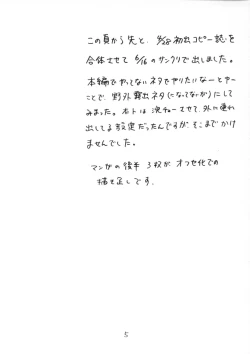 この頁から先と、初出コピー誌を
合体させて 6/16 のサンクリで出しました。
本編でやってないネタでやりたいなーとゆー
ことで、野外露出ネタ(になってないが)にして
みました。ホントは 決チューさせて、外に連れ
出してる設定だったんですが、そこまでかけ
ませんでした。
マンガの後半 3枚が オフセ化での
描き足しです。
5